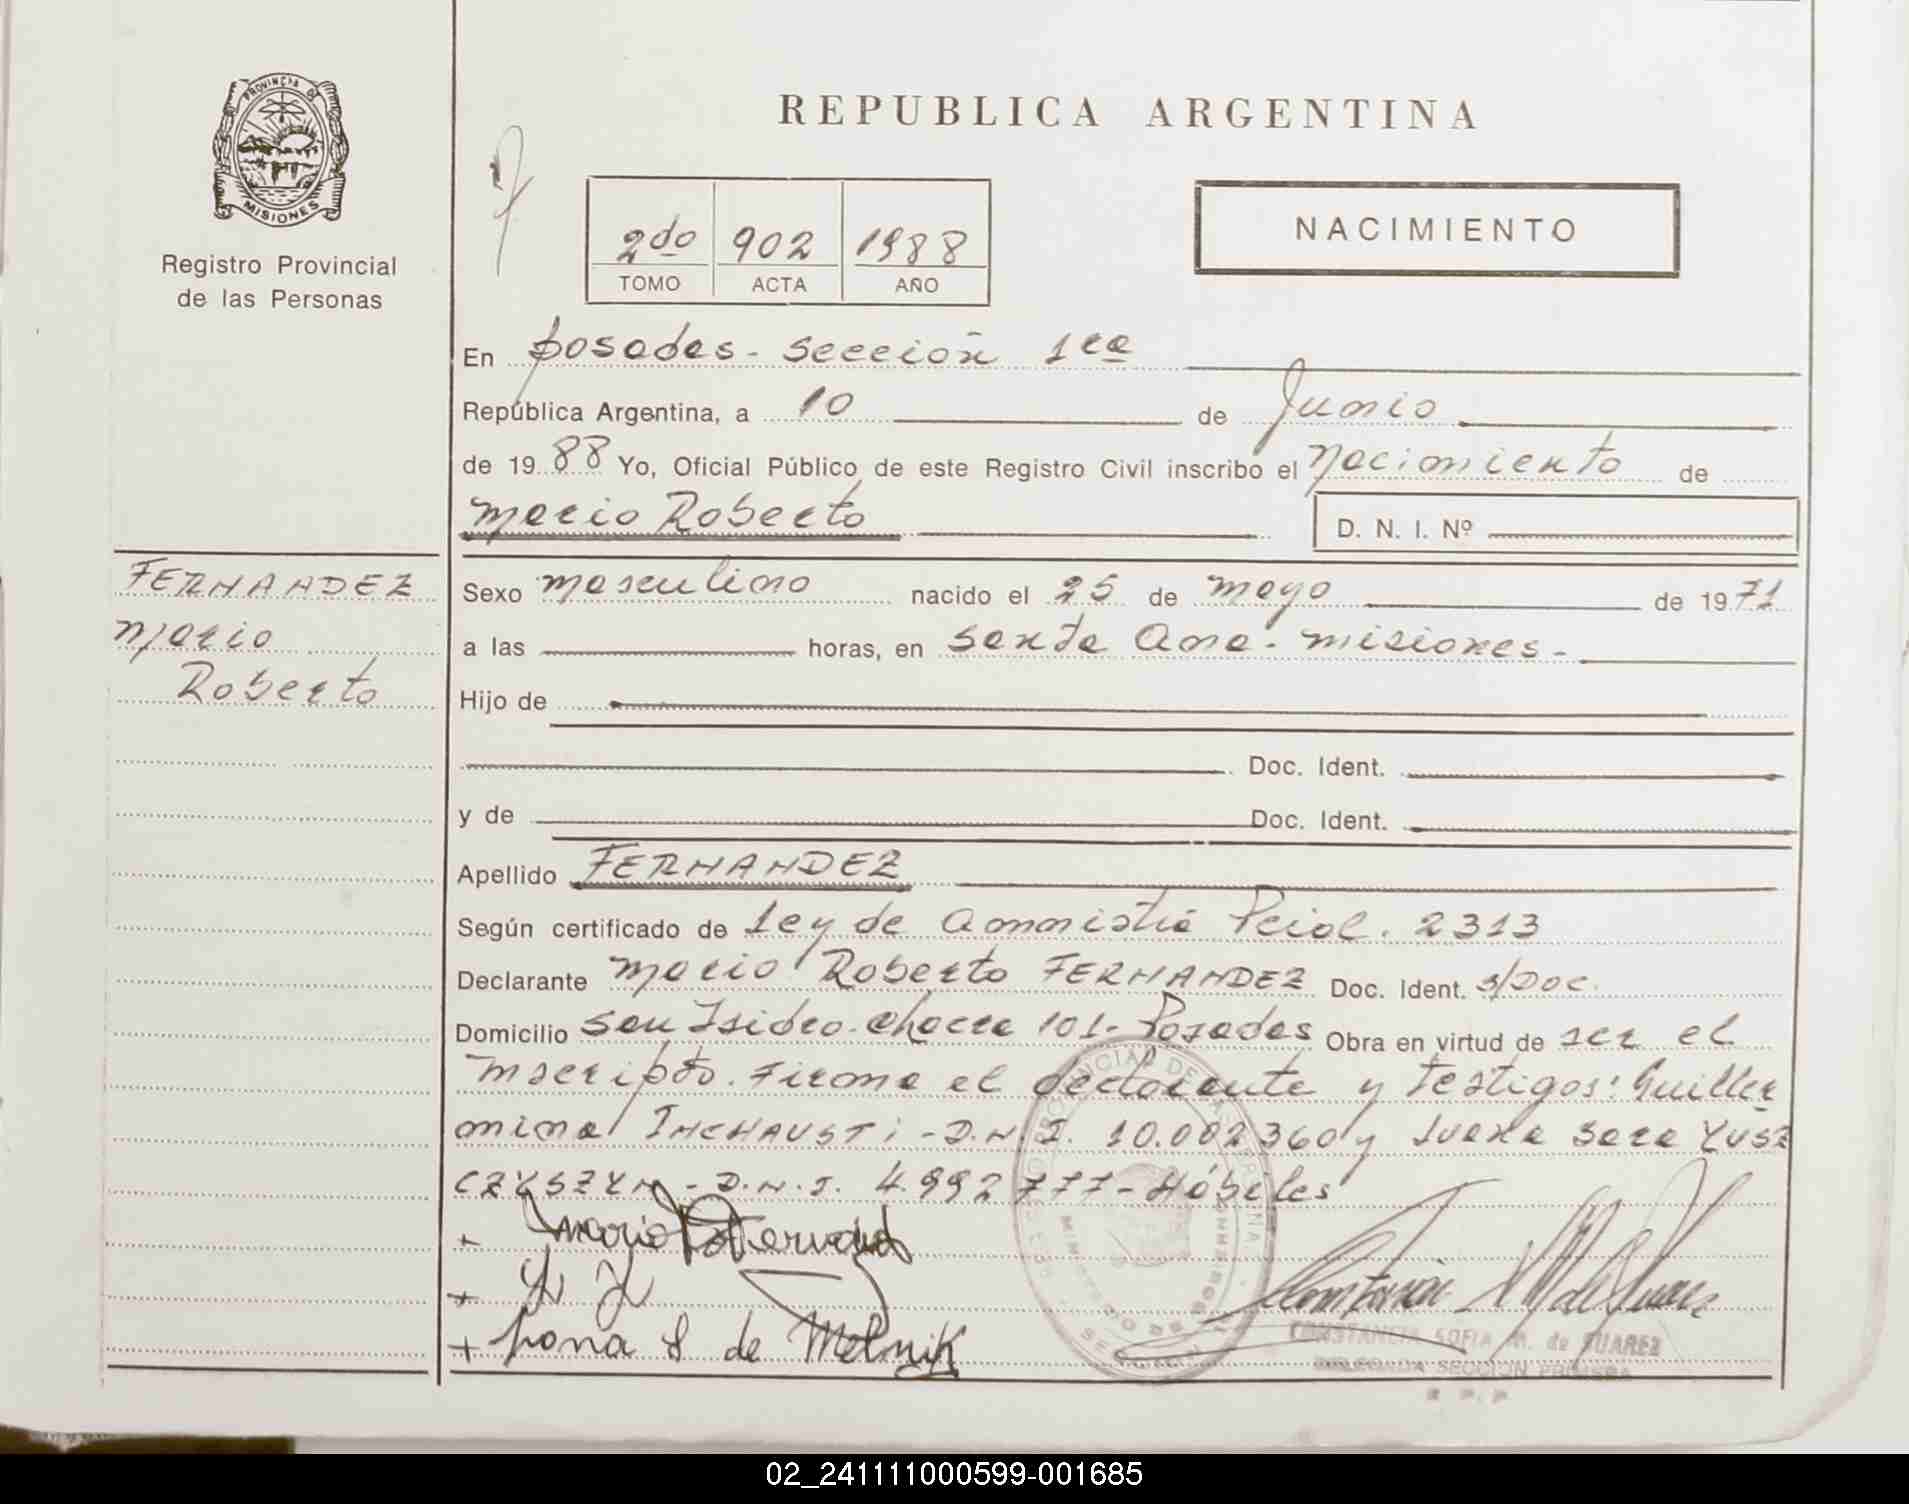 REPUBLICA ARGENTINA
PROVINCIA DE
MISIONES
Registro Provincial
de las Personas
2do 902 1988
TOMO ACTA AÑO
NACIMIENTO
En Posadas - Sección 1ra
República Argentina, a 10 de Junio
de 19 88 Yo, Oficial Público de este Registro Civil inscribo el Nacimiento de
Mario Roberto D. N. I. Nº
FERNANDEZ
Mario
Roberto
Sexo masculino nacido el 25 de mayo de 19 71
a las horas, en Santa Ana - Misiones -
Hijo de
Doc. Ident.
y de Doc. Ident.
Apellido FERNANDEZ
Según certificado de Ley de Amnistía Pcial. 2313
Declarante Mario Roberto FERNANDEZ Doc. Ident. s/Doc.
Domicilio San Isidro - Chacra 101 - Posadas Obra en virtud de ser el
inscripto. Firma el declarante y testigos: Guiller
mina INCHAUSTi - D.N.I. 10.002360 y Juana Sara YUSZ
CZYSZYN - D.N.I. 4.992777 - Hábiles
+ Mario R Fernandez
+
+ Juana S de Melnik
CONSTANCIA SOFIA M. de SUAREZ
DELEGADA SECCION PRIMERA
R. P. P.
02_241111000599-001685